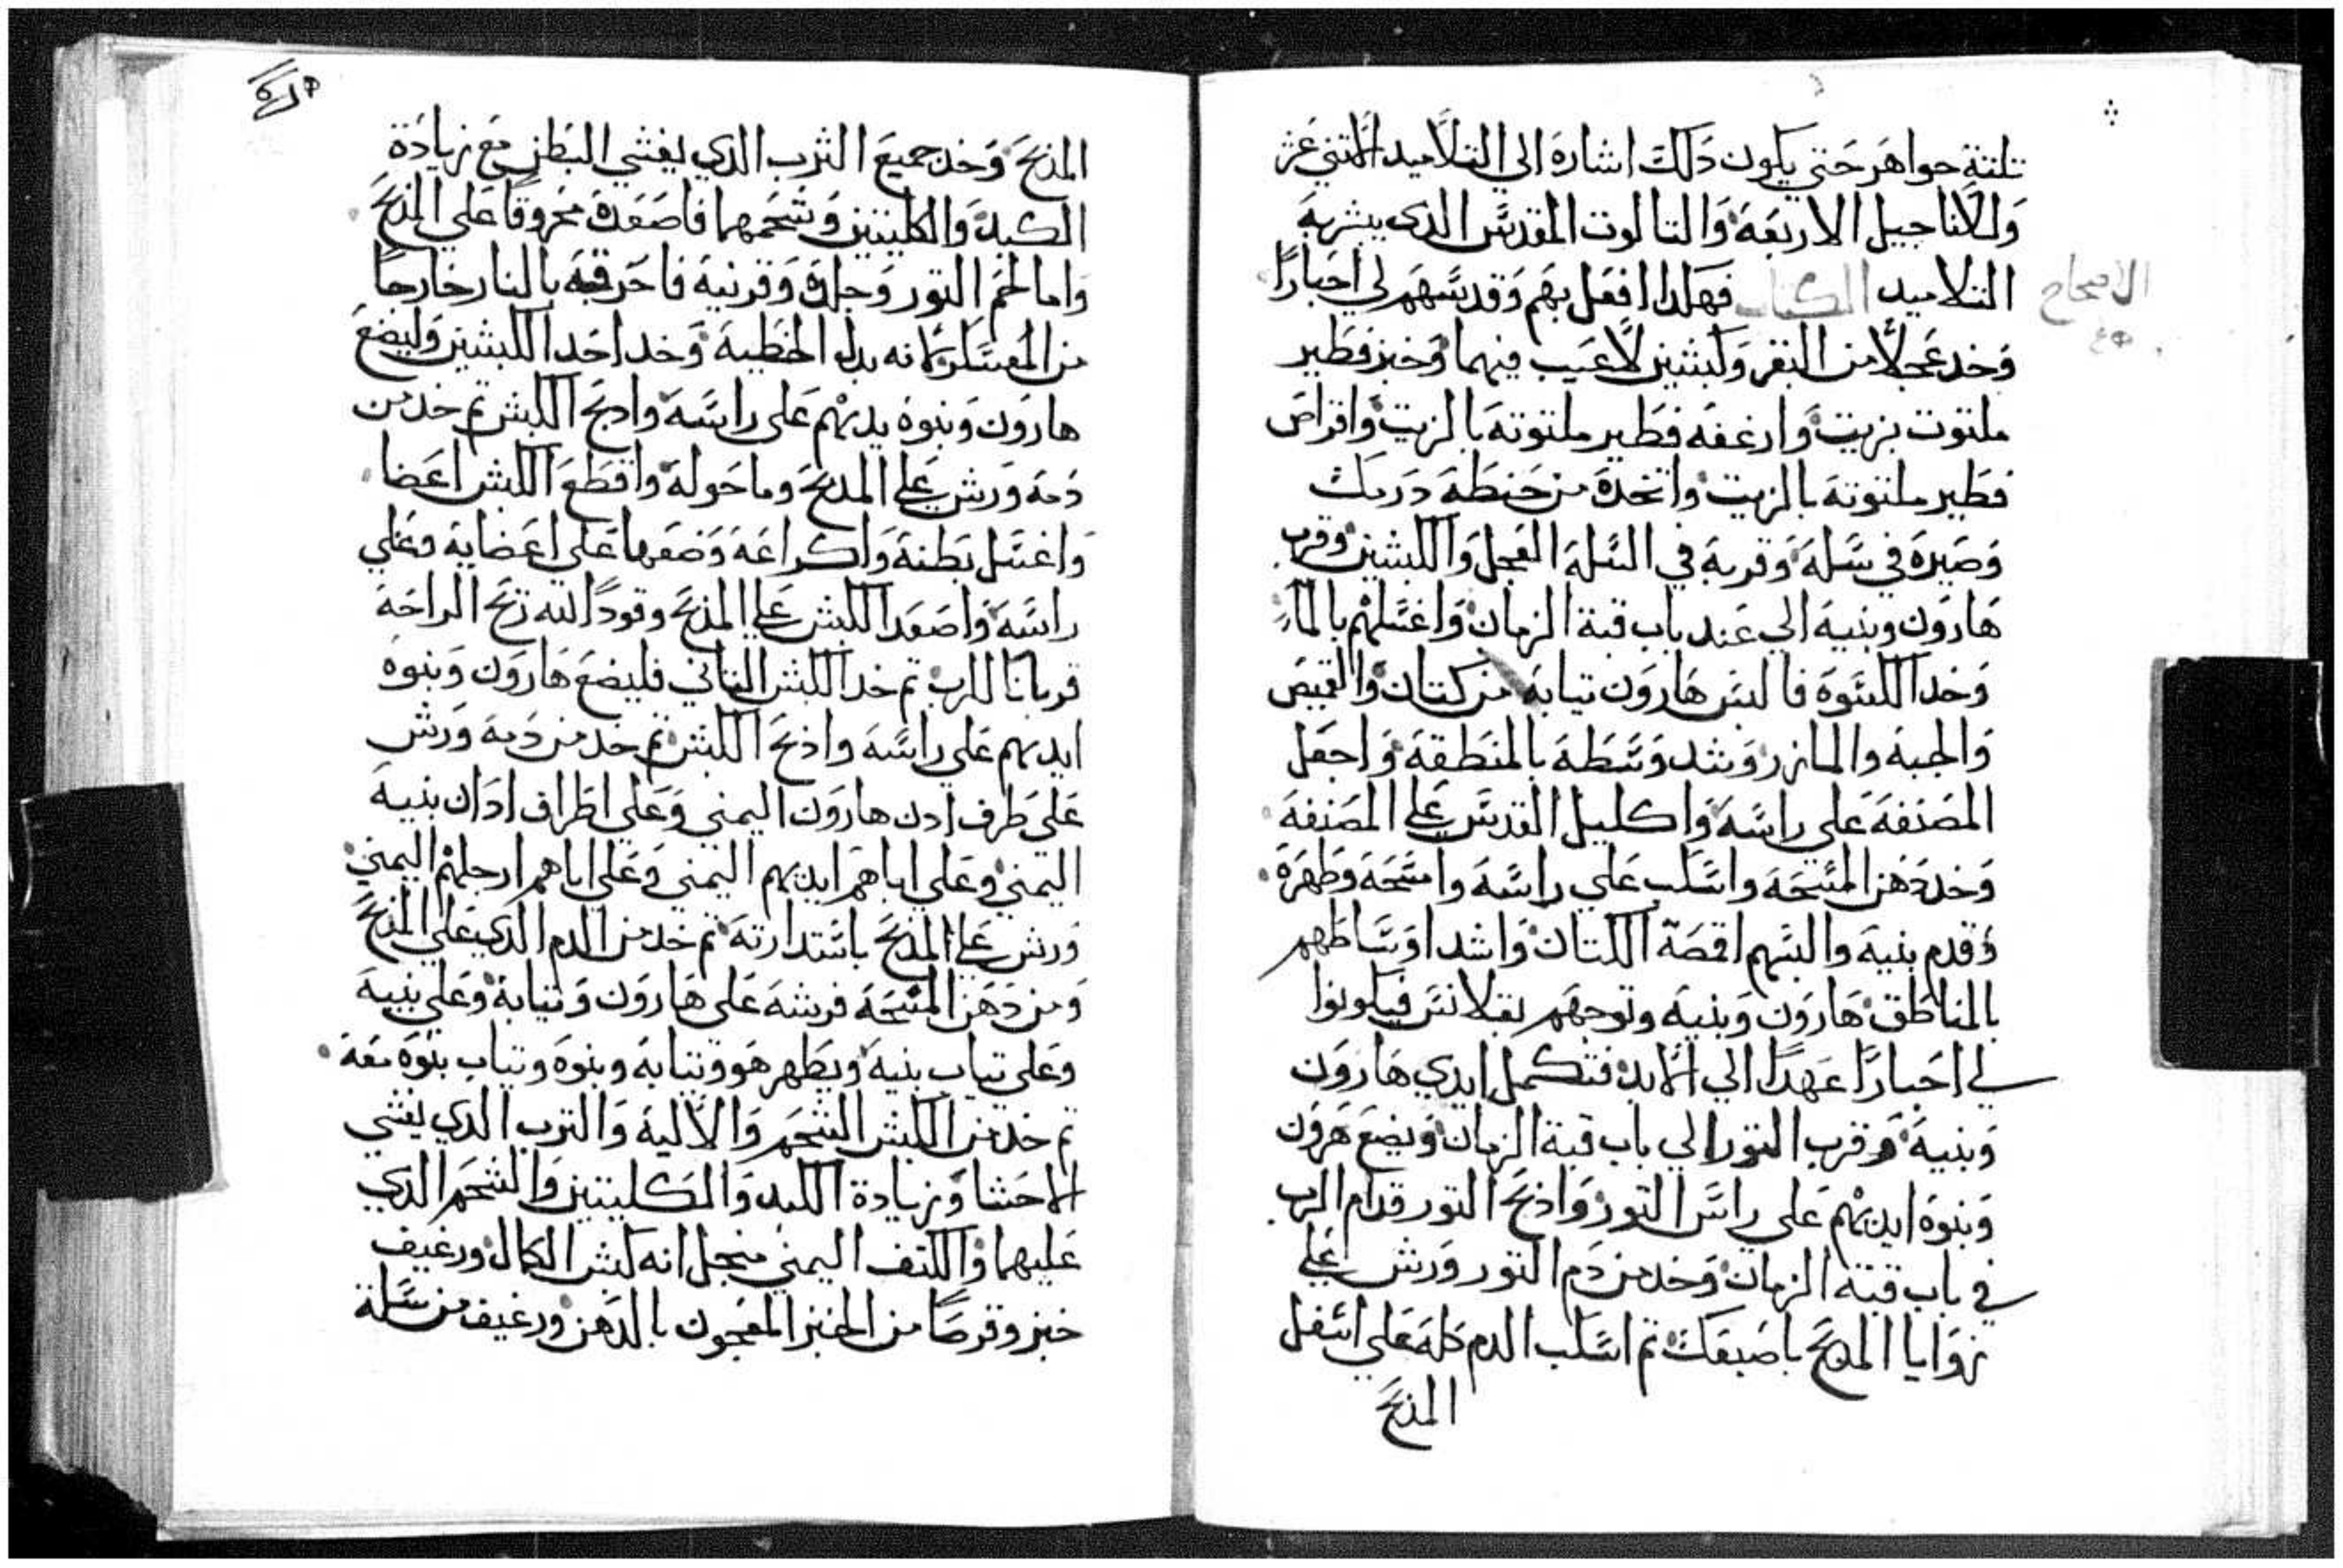 تلتة جواهر حتي يكون دلك اشارة الي التلاميد الاتني عشر
وللاناجيل الاربعة والتالوت المقدس الدي يبشر به
التلاميد الكتاب فهكدا افعل بهم وقدسهم لي احبارا
الاصحاح
وخد عجلا من البقر وكبشين لا عيب فيهما وخبز فطير
ملتوت بزيت وارغفة فطير ملتوتة بالزيت واقراص
فطير ملتوتة بالزيت واتخدة من حنطة درمك
وصيرة في سلة وقربة في السلة العجل والكبشين وقرب
هارون وبنية الي عند باب قبة الزمان واغسلهم بالماء
وخد الكسوة فالبس هارون تيابة من كتان والقميص
والجبة والمازر وشد وسطة بالمنطقة واجعل
المصنفة علي راسة واكليل القدس علي المصنفة
وخد دهن المسحة واسكب علي راسة وامسحة وطهرة
وقدم بنية والبسهم اقمصة الكتان واشد اوساطهم
بالمناطق هارون وبنية وتوجهم بقلانس فيكونوا
لي احبارا عهدا الي الابد فتكمل ايدي هارون
وبنية وقرب التور الي باب قبة الزمان ويضع هرون
وبنوة ايديهم علي راس التور واذبح التور قدام الرب
في باب قبة الزمان وخد من دم التور ورش علي
زوايا المدبح باصبعك تم اسكب الدم كلة علي اسفل
المذبح
المذبح وخد جميع الثرب الدي يغشي البطن مع زيادة
الكبد والكليتين وشحمهما فاصعدة محروقا علي المذبح
واما لحم التور وجلدة وقرنية فاحرقه بالنار خارجا
من المعسكر لانه بدل الخطية وخد احد الكبشين وليضع
هارون وبنوة يديهم علي راسة وادبح الكبش تم خد من
دمة ورش علي المدبح وما حولة واقطع الكبش اعضا
واغسل بطنة واكراعة وضعها علي اعضاية وعلي
راسة واصعد الكبش علي المذبح وقودا لله ريح الراحة
قربانا للرب تم خد الكبش التاني فليضع هارون وبنوة
ايديهم علي راسة واذبح الكبش تم خد من دمة ورش
علي طرف ادن هارون اليمني وعلي اطراف ادان بنية
اليمني وعلي اباهم ايديهم اليمني وعلي اباهم ارجلهم اليمني
ورش علي المدبح باستدارتة تم خد من الدم الدي علي المذبح
ومن دهن المسحة فرشة علي هارون وتيابة وعلي بنية
وعلي تياب بنية ويطهر هو وتيابة وبنوة وتياب بنوة معة
تم خد من الكبش الشحم والالية والترب الدي يغشي
الاحشا وزيادة الكبد والكليتين والشحم الدي
عليهما والكتف اليمني منجل انه كبش الكمال ورغيف
خبز وقرصا من الخبز المعجون بالدهن ورغيف من سلة